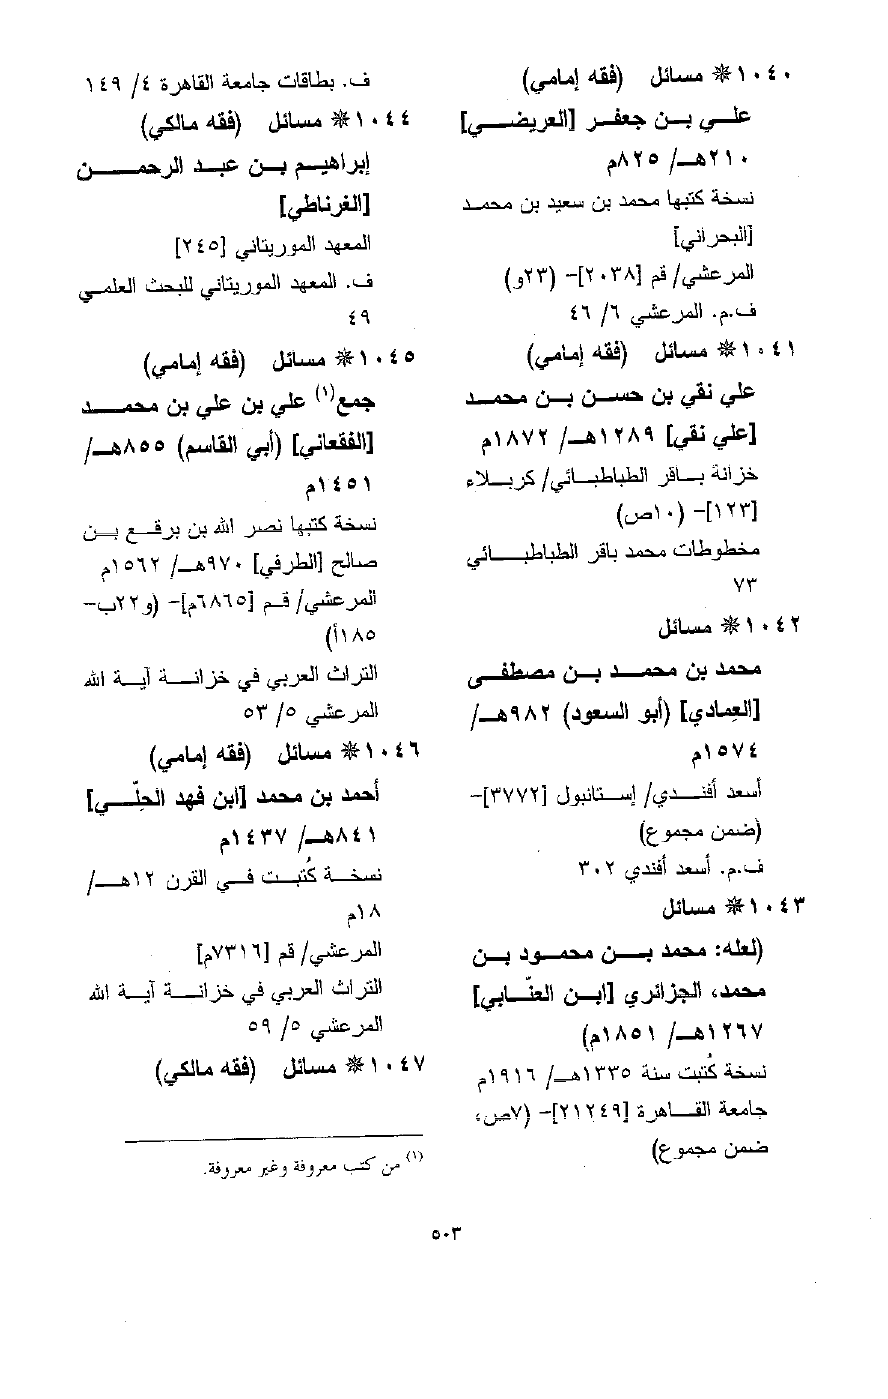 ١٠٤٠ ❋ مسائل (فقه إمامي)
علي بن جعفر [العريضي]
٢١٠هـ/ ٨٢٥م
نسخة كتبها محمد بن سعيد بن محمد
[البحراني]
المرعشي/ قم [٢٠٣٨]- (٢٣و)
ف.م. المرعشي ٦/ ٤٦
١٠٤١ ❋ مسائل (فقه إمامي)
علي نقي بن حسن بن محمد
[علي نقي] ١٢٨٩هـ/ ١٨٧٢م
خزانة باقر الطباطبائي/ كربلاء
[١٢٣]- (١٠ص)
مخطوطات محمد باقر الطباطبائي
٧٣
١٠٤٢ ❋ مسائل
محمد بن محمد بن مصطفى
[العِمادي] (أبو السعود) ٩٨٢هـ/
١٥٧٤م
أسعد أفندي/ إستانبول [٣٧٧٢]-
(ضمن مجموع)
ف.م. أسعد أفندي ٣٠٢
١٠٤٣ ❋ مسائل
(لعله: محمد بن محمود بن
محمد، الجزائري [ابن العنّابي]
١٢٦٧هـ/ ١٨٥١م)
نسخة كُتبت سنة ١٣٣٥هـ/ ١٩١٦م
جامعة القاهرة [٢١٢٤٩]- (٧ص،
ضمن مجموع)
ف. بطاقات جامعة القاهرة ٤/ ١٤٩
١٠٤٤ ❋ مسائل (فقه مالكي)
إبراهيم بن عبد الرحمن
[الغرناطي]
المعهد الموريتاني [٢٤٥]
ف. المعهد الموريتاني للبحث العلمي
٤٩
١٠٤٥ ❋ مسائل (فقه إمامي)
جمع(١) علي بن علي بن محمد
[الفقعاني] (أبي القاسم) ٨٥٥هـ/
١٤٥١م
نسخة كتبها نصر الله بن برقع بن
صالح [الطرفي] ٩٧٠هـ/ ١٥٦٢م
المرعشي/ قم [٦٨٦٥م]- (و٢٢ب-
١٨٥أ)
التراث العربي في خزانة آية الله
المرعشي ٥/ ٥٣
١٠٤٦ ❋ مسائل (فقه إمامي)
أحمد بن محمد [ابن فهد الحِلّي]
٨٤١هـ/ ١٤٣٧م
نسخة كُتبت في القرن ١٢هـ/
١٨م
المرعشي/ قم [٧٣١٦م]
التراث العربي في خزانة آية الله
المرعشي ٥/ ٥٩
١٠٤٧ ❋ مسائل (فقه مالكي)
(١) من كتب معروفة وغير معروفة.
٥٠٣